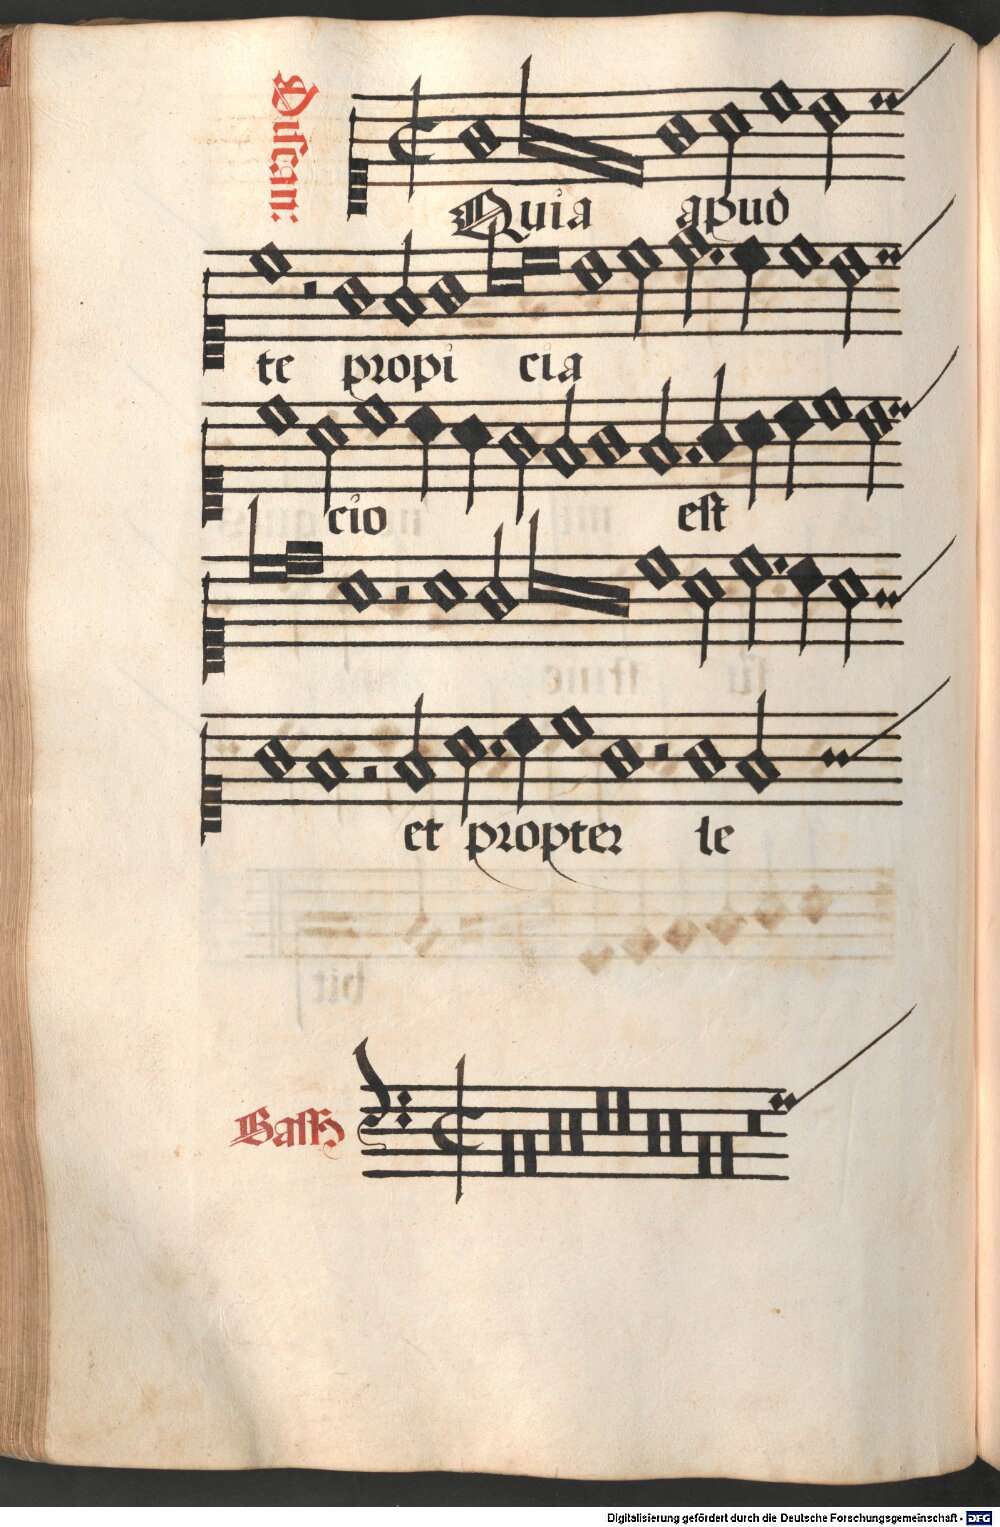 Discan:
Quia apud
te propi cia
cio est
et propter le
Bass
Digitalisierung gefördert durch die Deutsche Forschungsgemeinschaft - DFG